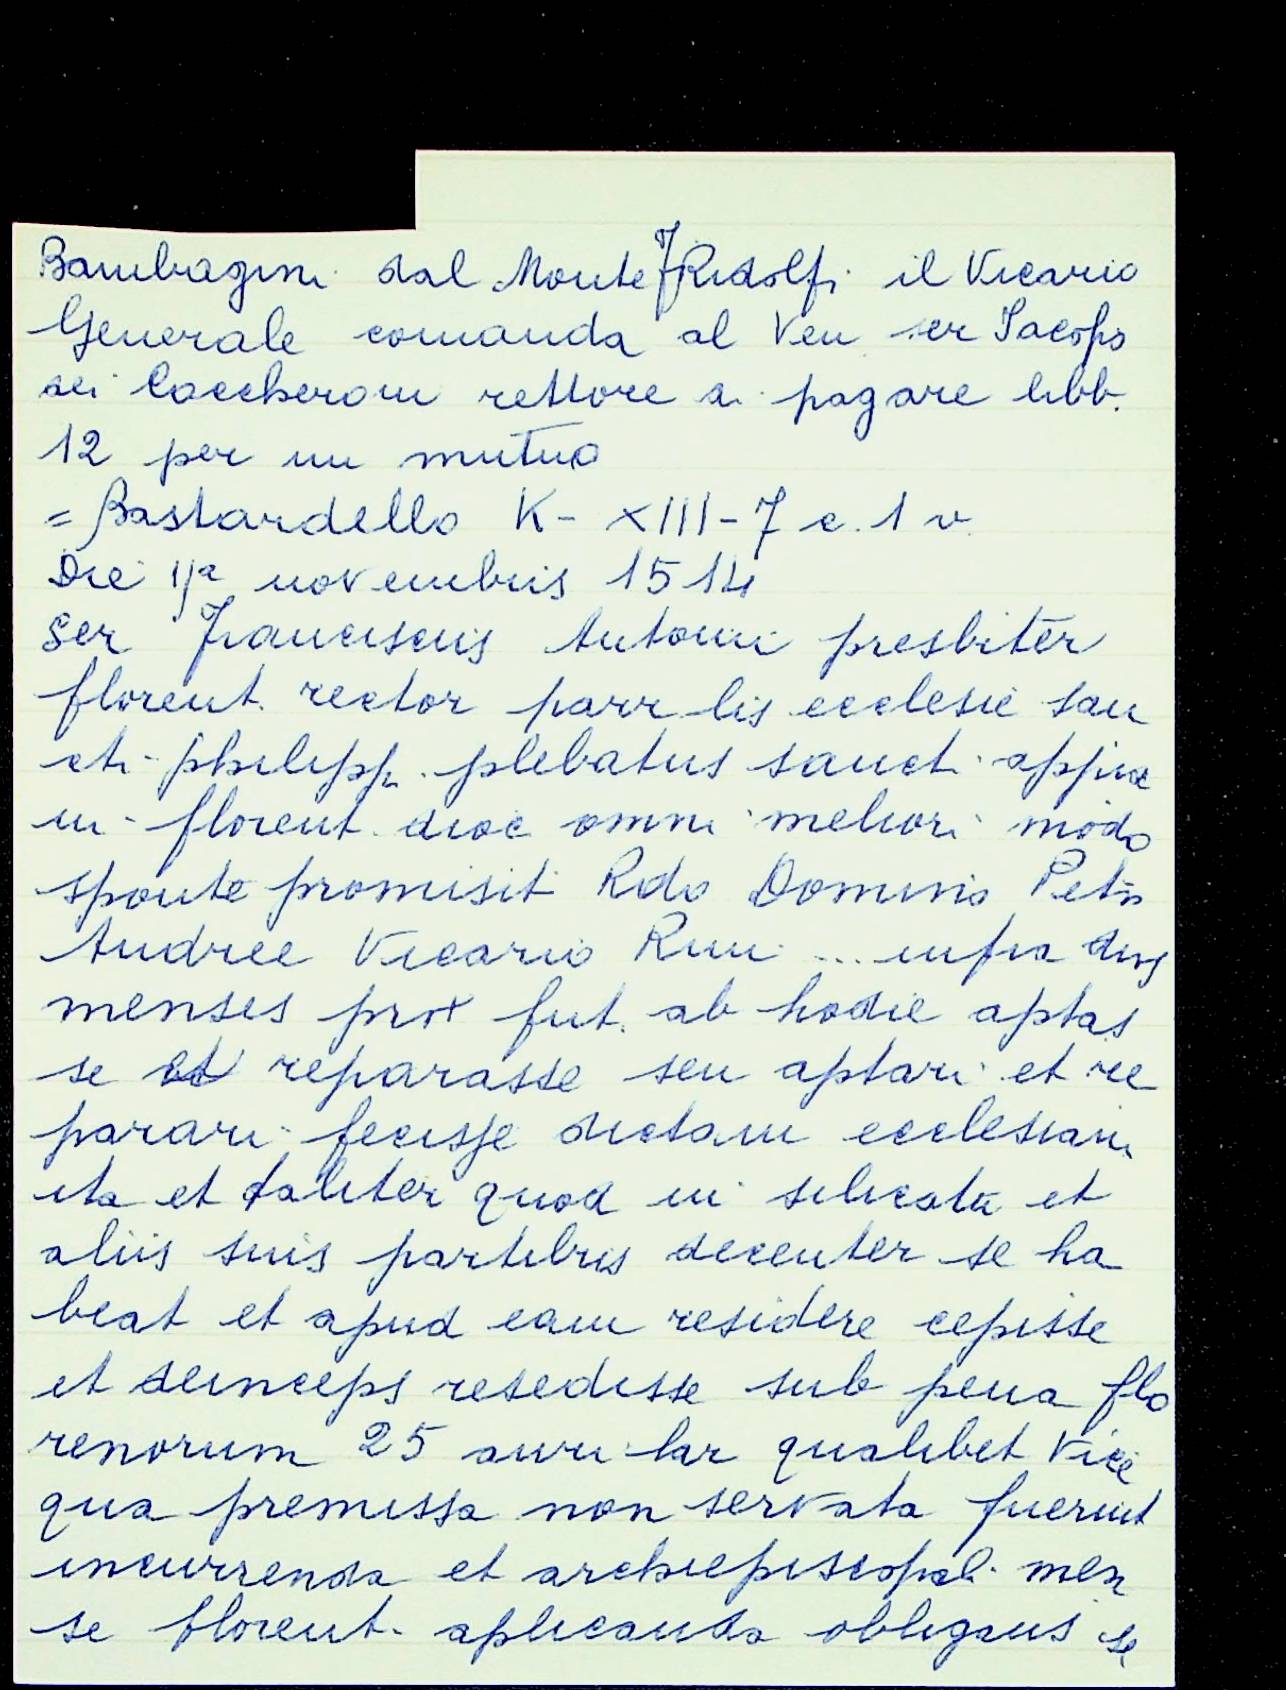 Bambagini dal Monte Ridolfi il Vicario
Generale comanda al Ven ser Jacopo
dei Caccheroni rettore di pagare libb.
12 per un mutuo
= Bastardello K - XIII - 7 c. 1 v.
Die novembris 1514
Ser Franciscus Antonii presbiter
florent. rector parr lis ecclesie san
cti philippi plebatus sancti appia
ni florent. dioc omni meliori modo
sponte promisit Rdo Domino Petro
Andree Vicario Rmi ... infra duos
menses prox fut. ab hodie aptas
se et reparasse seu aptari et re
parari fecisse dictam ecclesiam
ita et taliter quod in silicatu et
aliis suis partibus decenter se ha
beat et apud eam residere cepisse
et deinceps resedisse sub pena flo
renorum 25 auri lar qualibet vice
qua premissa non servata fuerint
incurrenda et archiepiscopali men
se florent. aplicanda obligans se